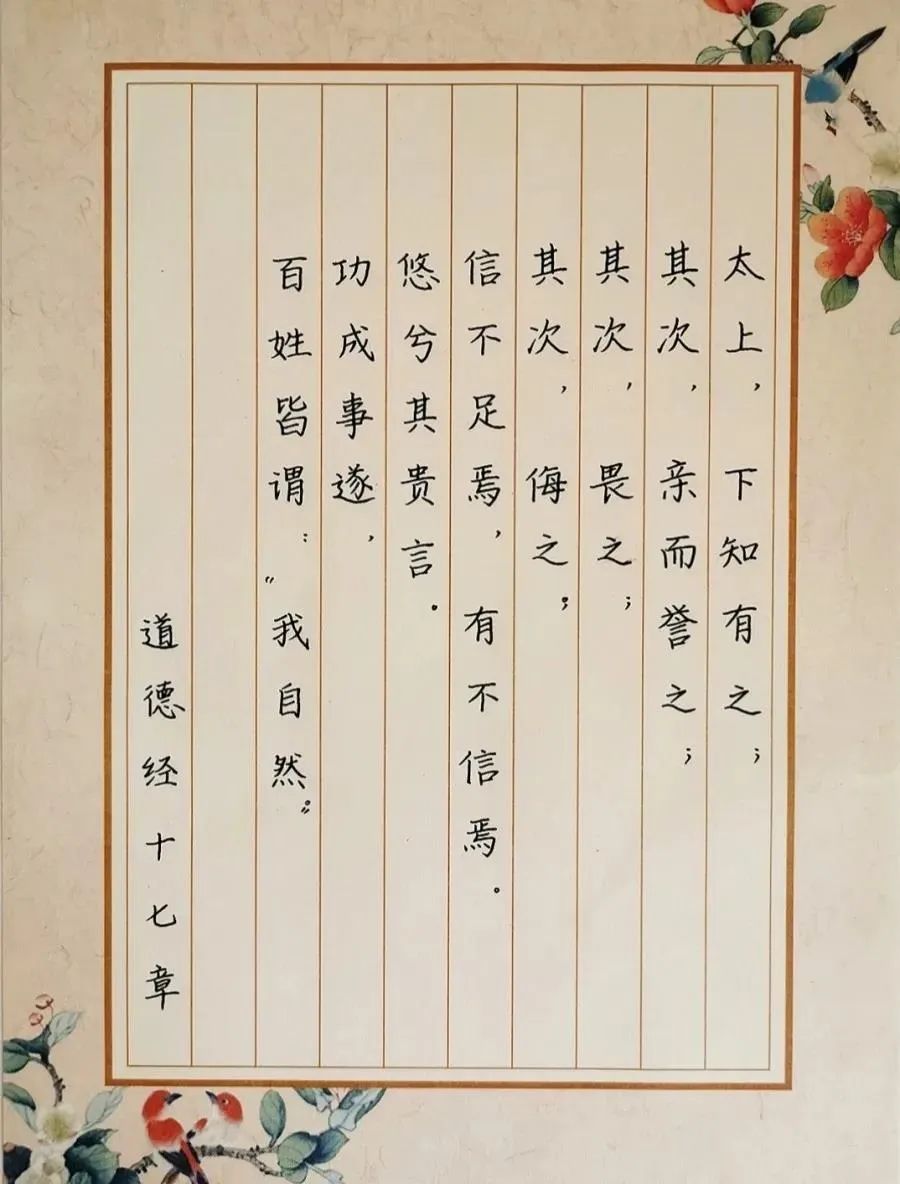 太上，下知有之；
其次，亲而誉之；
其次，畏之；
其次，侮之；
信不足焉，有不信焉。
悠兮其贵言。
功成事遂，
百姓皆谓：“我自然。”
道德经十七章